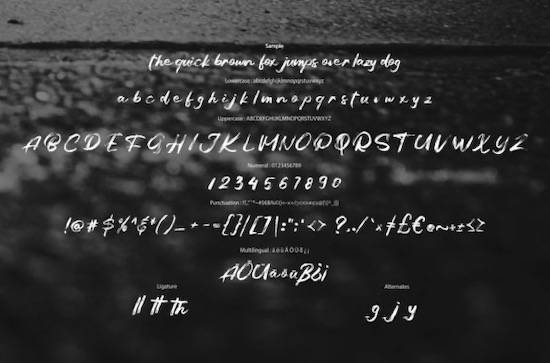 Sample
the quick brown fox jumps over lazy dog
Lowercase : abcdefghijklmnopqrstuvwxyz
a b c d e f g h i j k l m n o p q r s t u v w x y z
Uppercase : ABCDEFGHIJKLMNOPQRSTUVWXYZ
A B C D E F G H I J K L M N O P Q R S T U V W X Y Z
Numeral : 0123456789
1 2 3 4 5 6 7 8 9 0
Punctuation :
!@#$%^&*()_+-={}|[]\:";'<>?../`×≠£€
Multilingual :
ÄÖÜäöüßèi
Ligature
ll tt th
Alternates
g j y